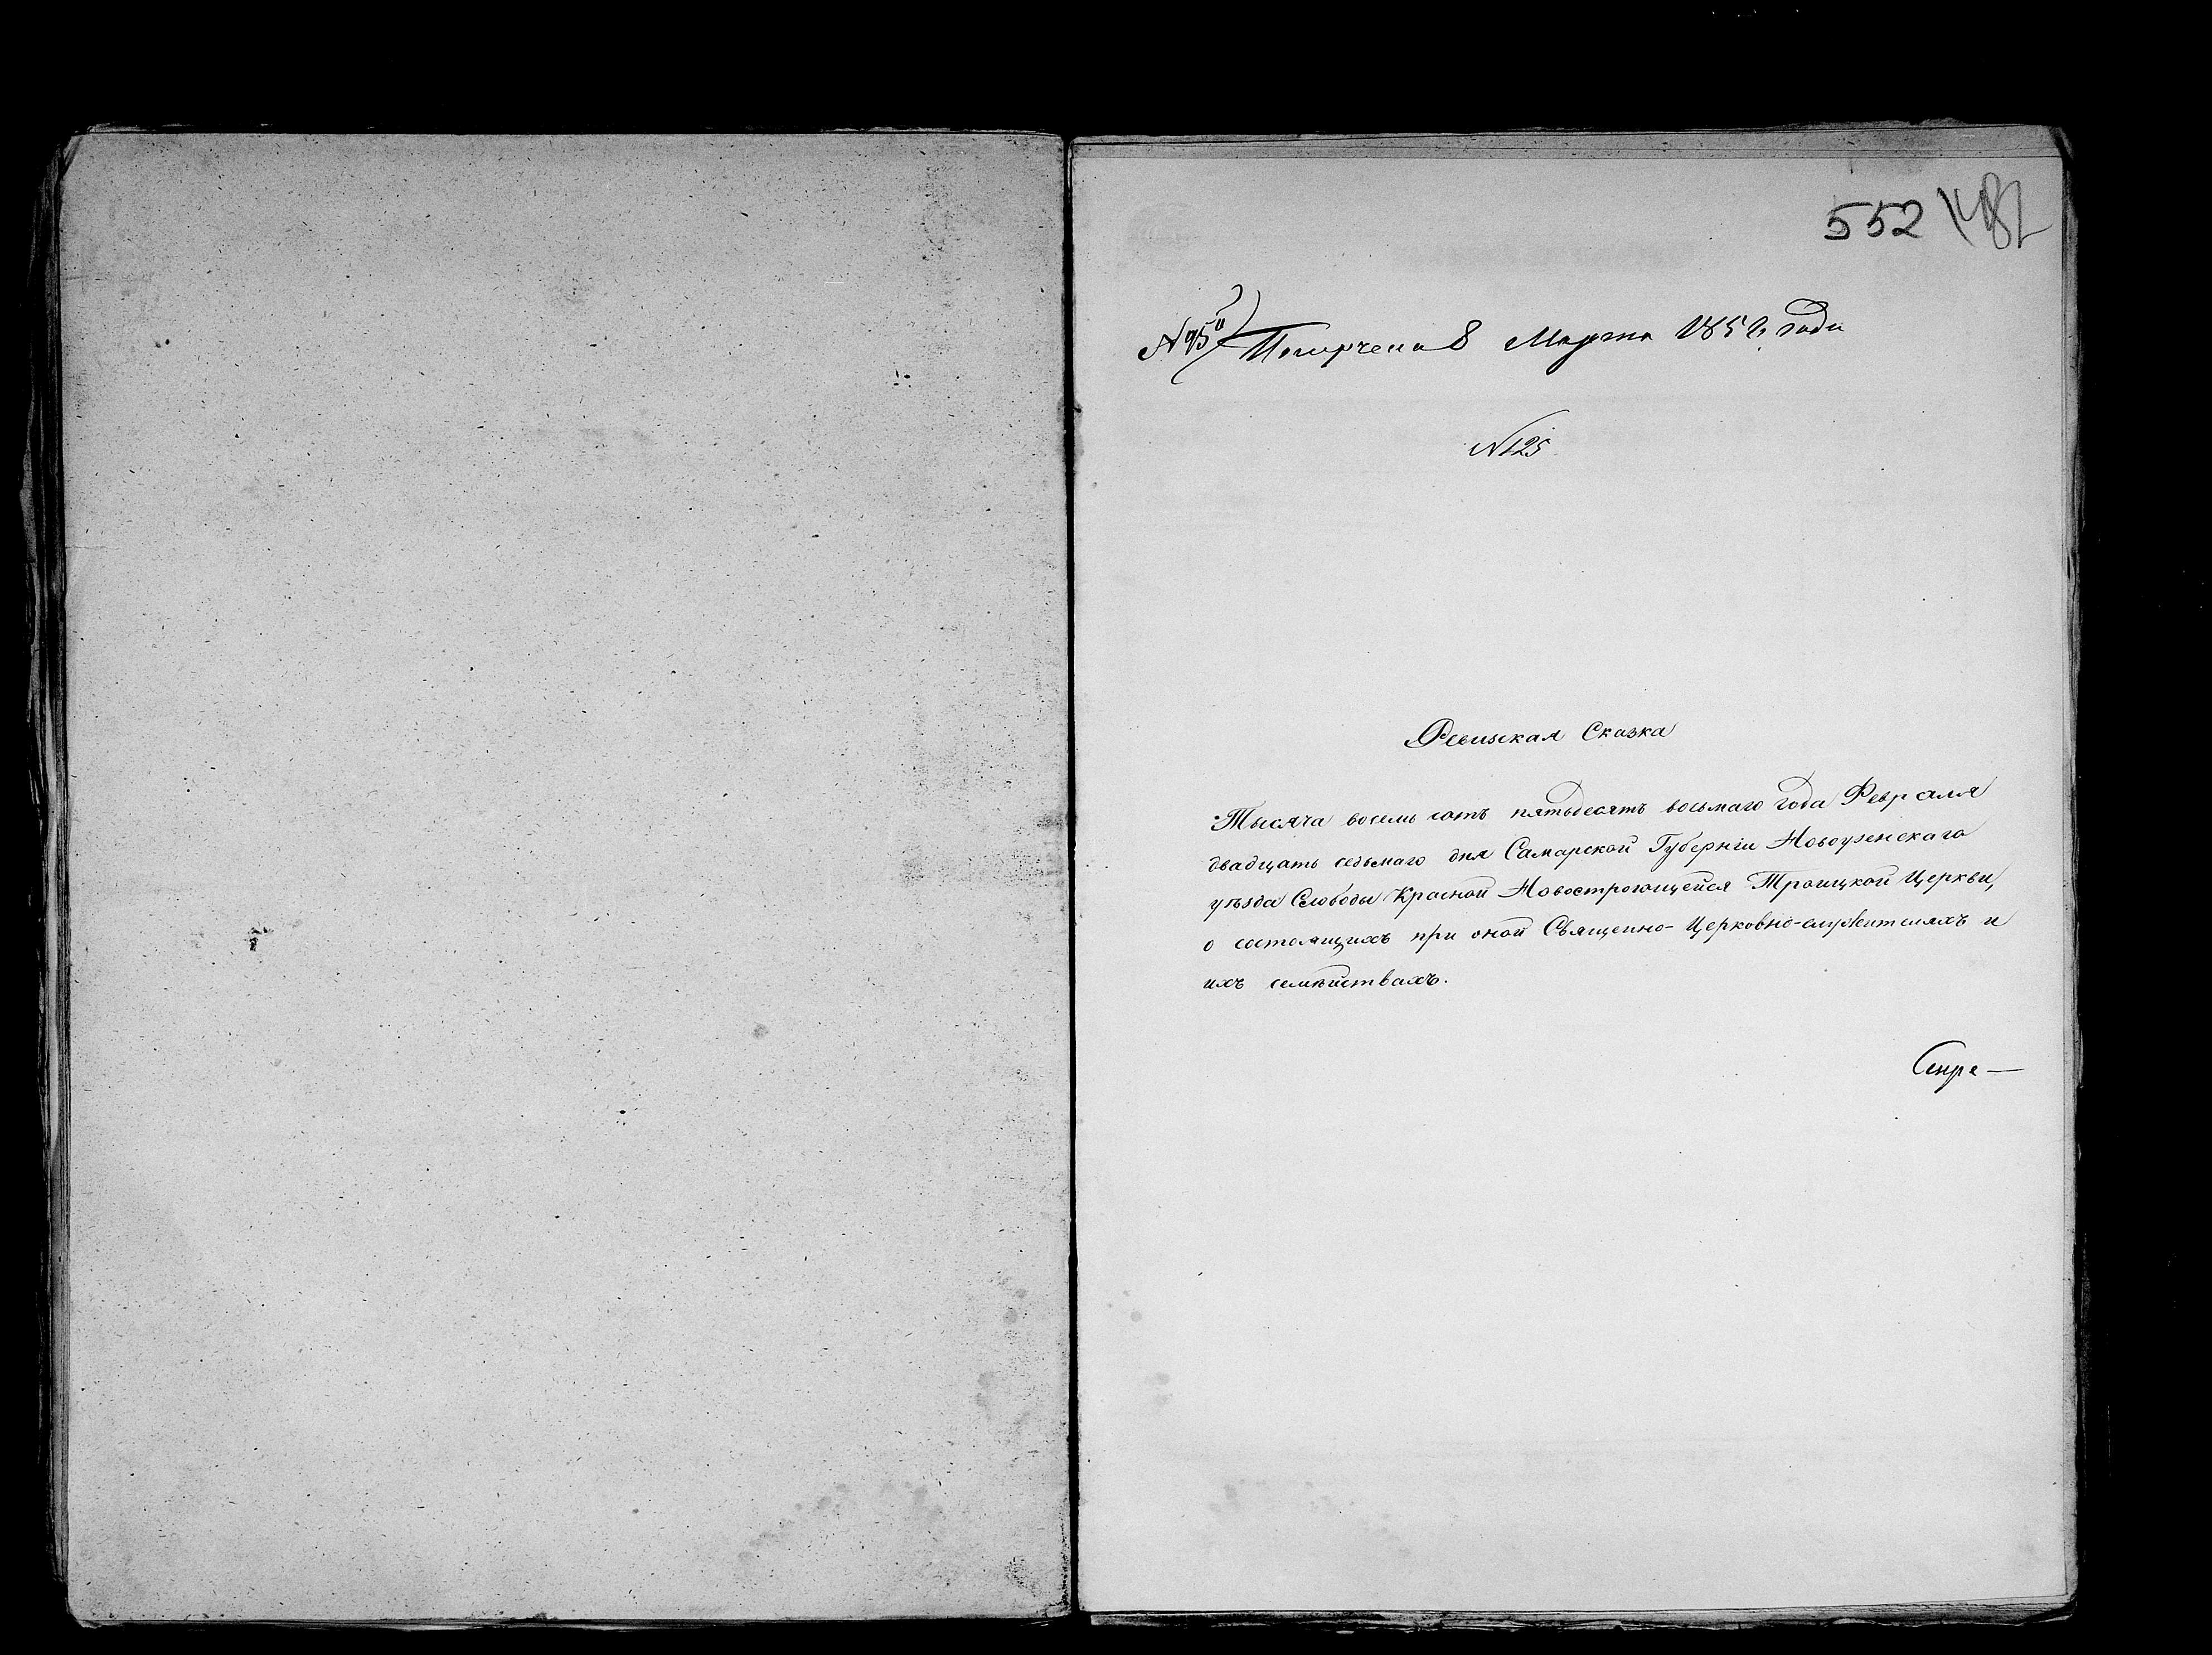 552
Получена 8 Марта 1858 года
№ 125
Ревизская Сказка
Тысяча восемь сотъ пятьдесятъ восьмаго года Февраля
двадцать седьмаго дня Самарской Губерніи Новоузенскаго
уѣзда Слободы Красной Новостроющейся Троицкой Церкви,
о состоящихъ при оной Священно-Церковно-служителяхъ и
ихъ семѣйствахъ.